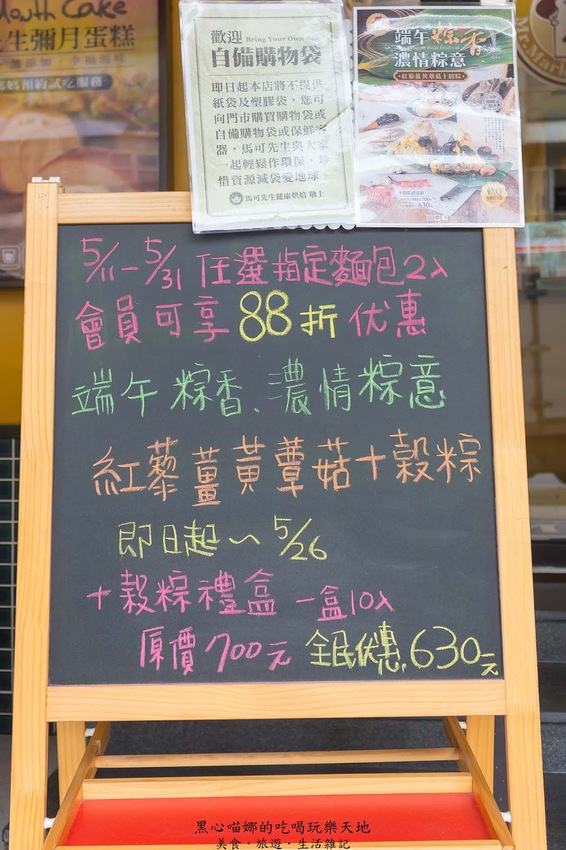 Mouth Cake
生彌月蛋糕
預約試吃服務
歡迎 Bring Your Own
自備購物袋
即日起本店將不提供
紙袋及塑膠袋,您可
向門市購買購物袋或
自備購物袋或保鮮容
器,馬可先生與大家
一起輕鬆作環保,珍
惜資源減袋愛地球
馬可先生健康烘焙 敬上
端午粽香
濃情粽意
紅藜薑黃蕈菇十穀粽
5/11-5/31 任選指定麵包2入
會員可享88折优惠
端午粽香、濃情粽意
紅藜薑黃蕈菇十穀粽
即日起~5/26
十穀粽禮盒 一盒10入
原價700元 全民优惠630元
黑心喵娜的吃喝玩樂天地
美食·旅遊·生活雜記